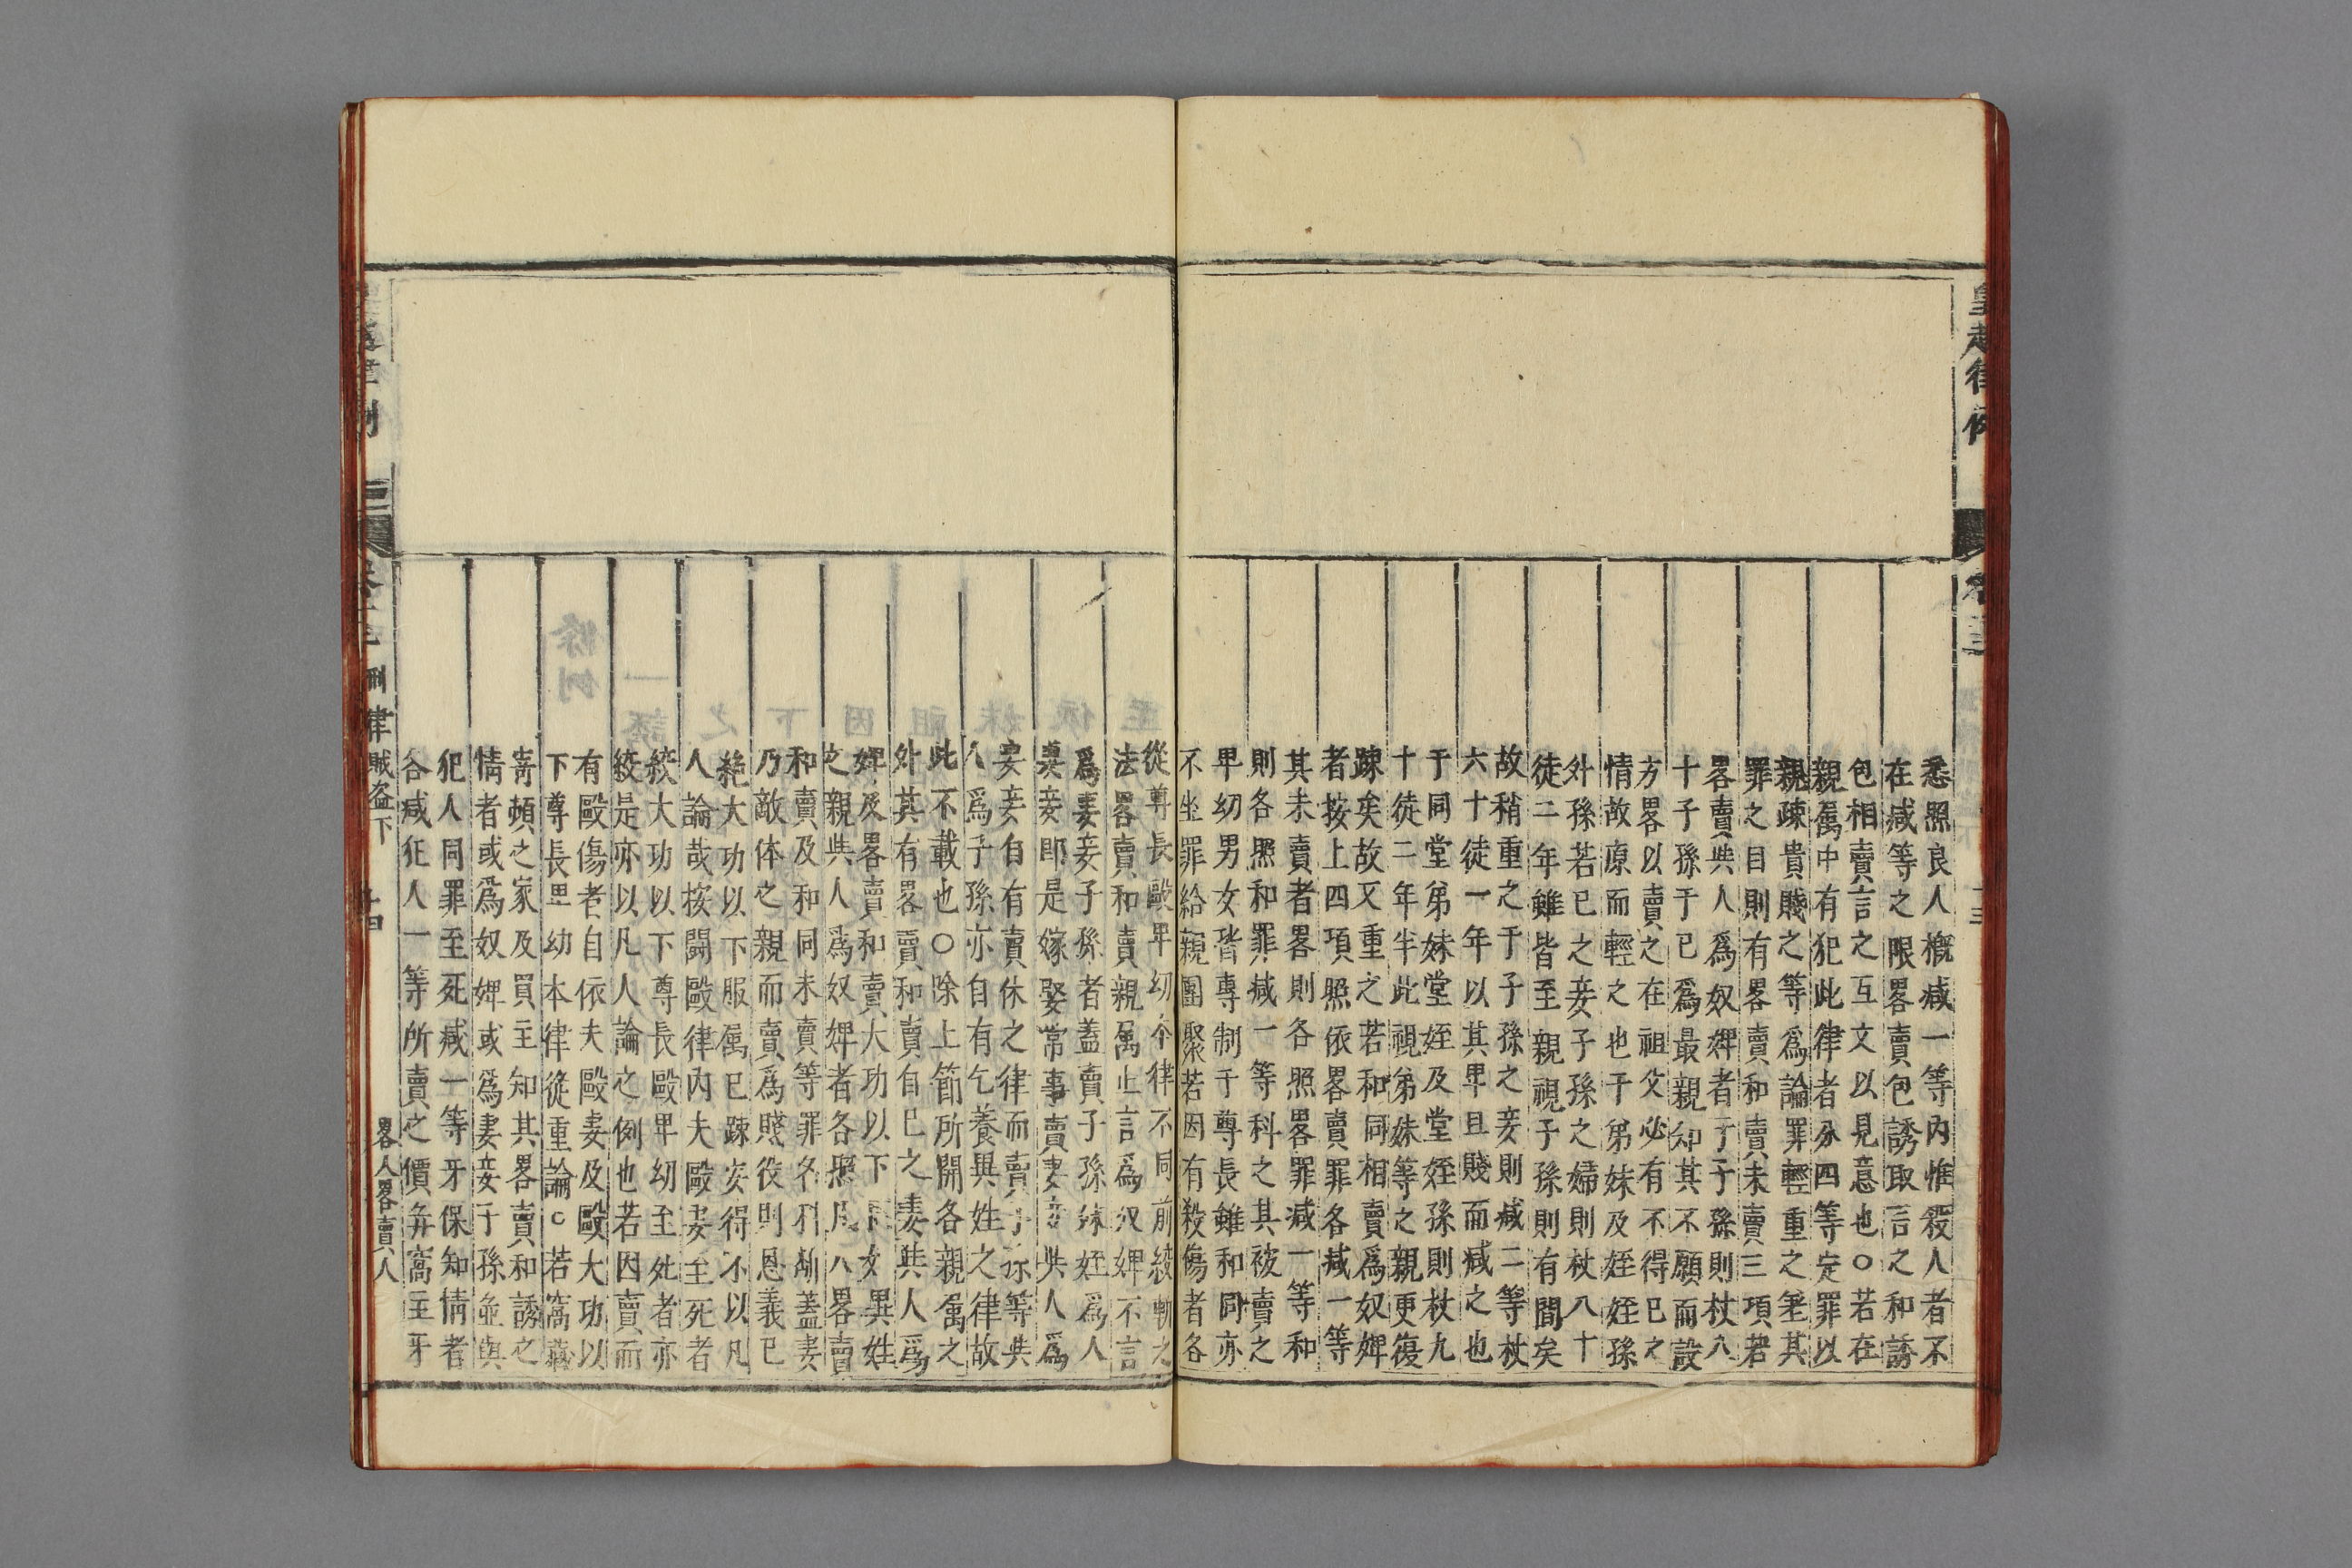 悉照良人概减一等內惟殺人者不
在减等之限畧賣包誘取言之和誘
包相賣言之互文以見意也○若在
親屬中有犯此律者分四等定罪以
親疎貴賤之等爲論罪輕重之差其
罪之目則有畧賣和賣未賣三項若
畧賣與人爲奴婢者于子孫則杖八
十子孫于已爲最親知其不願而設
方畧以賣之在祖父必有不得已之
情故原而輕之也于弟妹及姪姪孫
外孫若已之妾子孫之婦則杖八十
徒二年雖皆至親視子孫則有間矣
故稍重之于子孫之妾則减二等杖
六十徒一年以其卑且賤而减之也
于同堂弟妹堂姪及堂姪孫則杖九
十徒二年半此視弟妹等之親更復
踈矣故又重之若和同相賣爲奴婢
者按上四項照依畧賣罪各减一等
其未賣者畧則各照畧罪减一等和
則各照和罪减一等科之其被賣之
卑幼男女皆專制于尊長雖和同亦
不坐罪給親團聚若因有殺傷者各
從尊長毆卑幼本律不同前絞斬之
法畧賣和賣親屬止言爲奴婢不言
爲妻妾子孫者蓋賣子孫妹姪爲人
妻妾卽是嫁娶常事賣妻妾與人爲
妻妾自有賣休之律而賣子孫等與
人爲子孫亦自有乞養異姓之律故
此不載也○除上節所開各親屬之
外其有畧賣和賣自已之妻與人爲
婢及畧賣和賣大功以下尊女異姓
之親與人爲奴婢者各照凡人畧賣
和賣及和同未賣等罪名科斷蓋妻
乃敵体之親而賣爲賤役則恩義已
絶大功以下服屬已踈安得不以凡
人論哉按鬪毆律內夫毆妻至死者
絞大功以下尊長毆卑幼至死者亦
絞是亦以凡人論之例也若因賣而
有毆傷者自依夫毆妻及毆大功以
下尊長卑幼本律從重論○若窩藏
寄頓之家及買主知其畧賣和誘之
情者或爲奴婢或爲妻妾子孫並與
犯人同罪至死减一等牙保知情者
各减犯人一等所賣之價并窩主牙
律賊盜下
畧人畧賣人